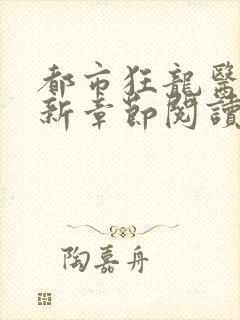 都市狂龍醫
新章節閱讀
陶嘉舟